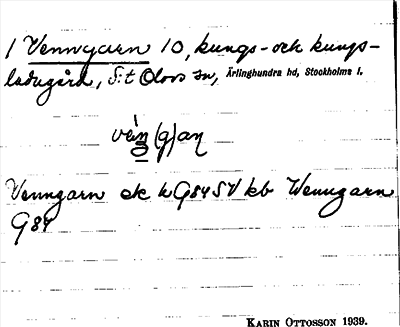 1 Venngarn 10, kungs- och kungs-
ladugård, S:t Olovs sn, Ärlinghundra hd, Stockholms l.
Venngarn ek h G84 SV kb Wenngarn
G84
KARIN OTTOSSON 1939.